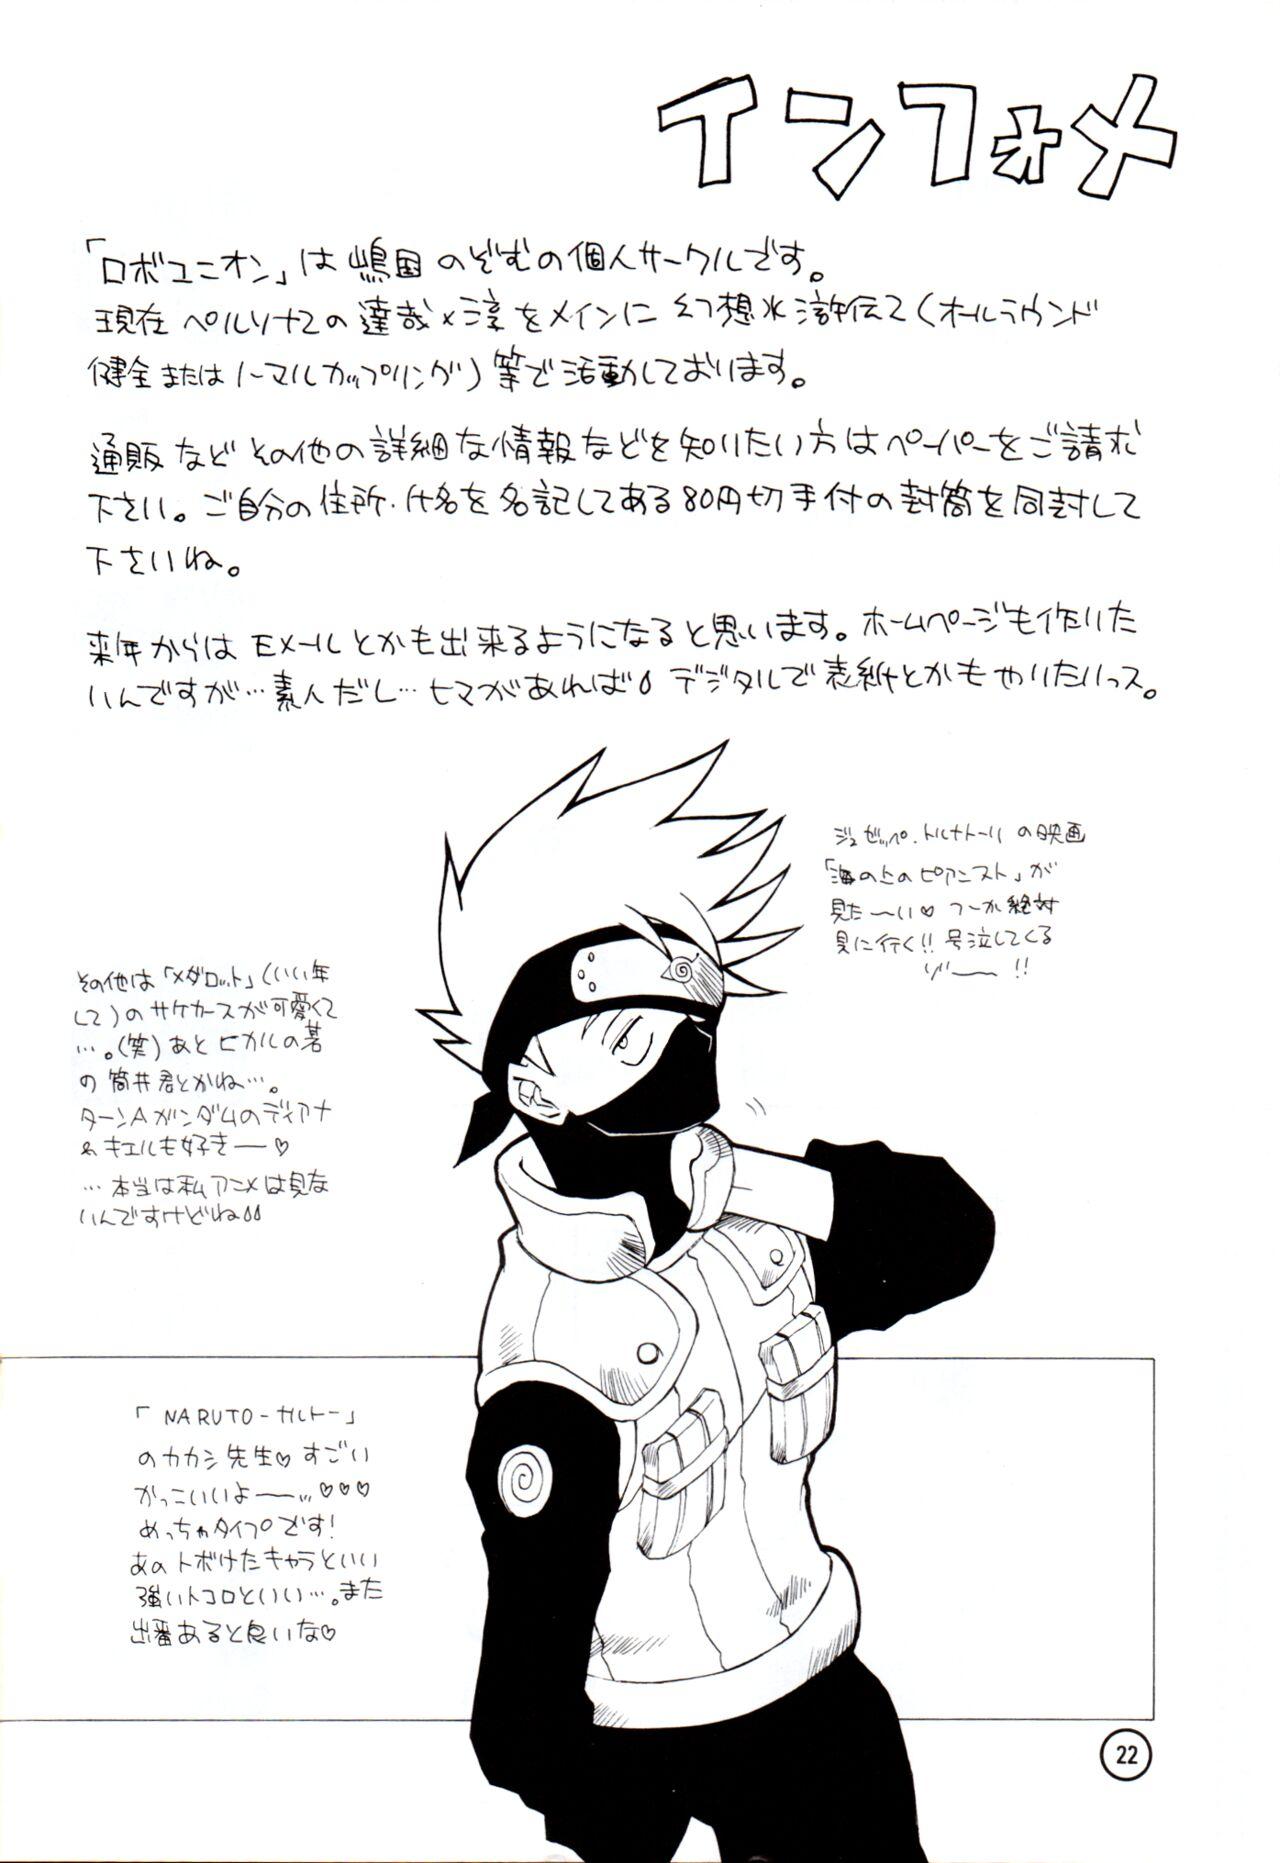 インフォメ
「ロボユニオン」は嶋国のぞむの個人サークルです。
現在ペルソナ2の達哉×淳をメインに幻想水滸伝2(オールラウンド
健全またはノーマルカップリング)等で活動しております。
通販などその他の詳細な情報などを知りたい方はペーパーをご請求
下さい。ご自分の住所・氏名を名記してある80円切手付の封筒を同封して
下さいね。
来年からはEメールとかも出来るようになると思います。ホームページも作りた
いんですが…素人だし…ヒマがあれば デジタルで表紙とかもやりたいっス。
ジュゼッペ・トルナトーレの映画
「海の上のピアニスト」が
見た〜い♡つーか絶対
見に行く!!号泣してくる
ゾ〜!!
その他は「メダロット」(いい年
して)のサケカースが可愛くて
…。(笑)あとヒカルの碁
の筒井君とかね…。
ターンAガンダムのディアナ
&キエルも好きー♡
…本当は私アニメは見な
いんですけどね
「NARUTO-ナルト-」
のカカシ先生♡すごい
かっこいいよー…♡♡♡
めっちゃタイプです!
あのトボけたキャラといい
強いトコロといい…。また
出番あると良いな♡
22